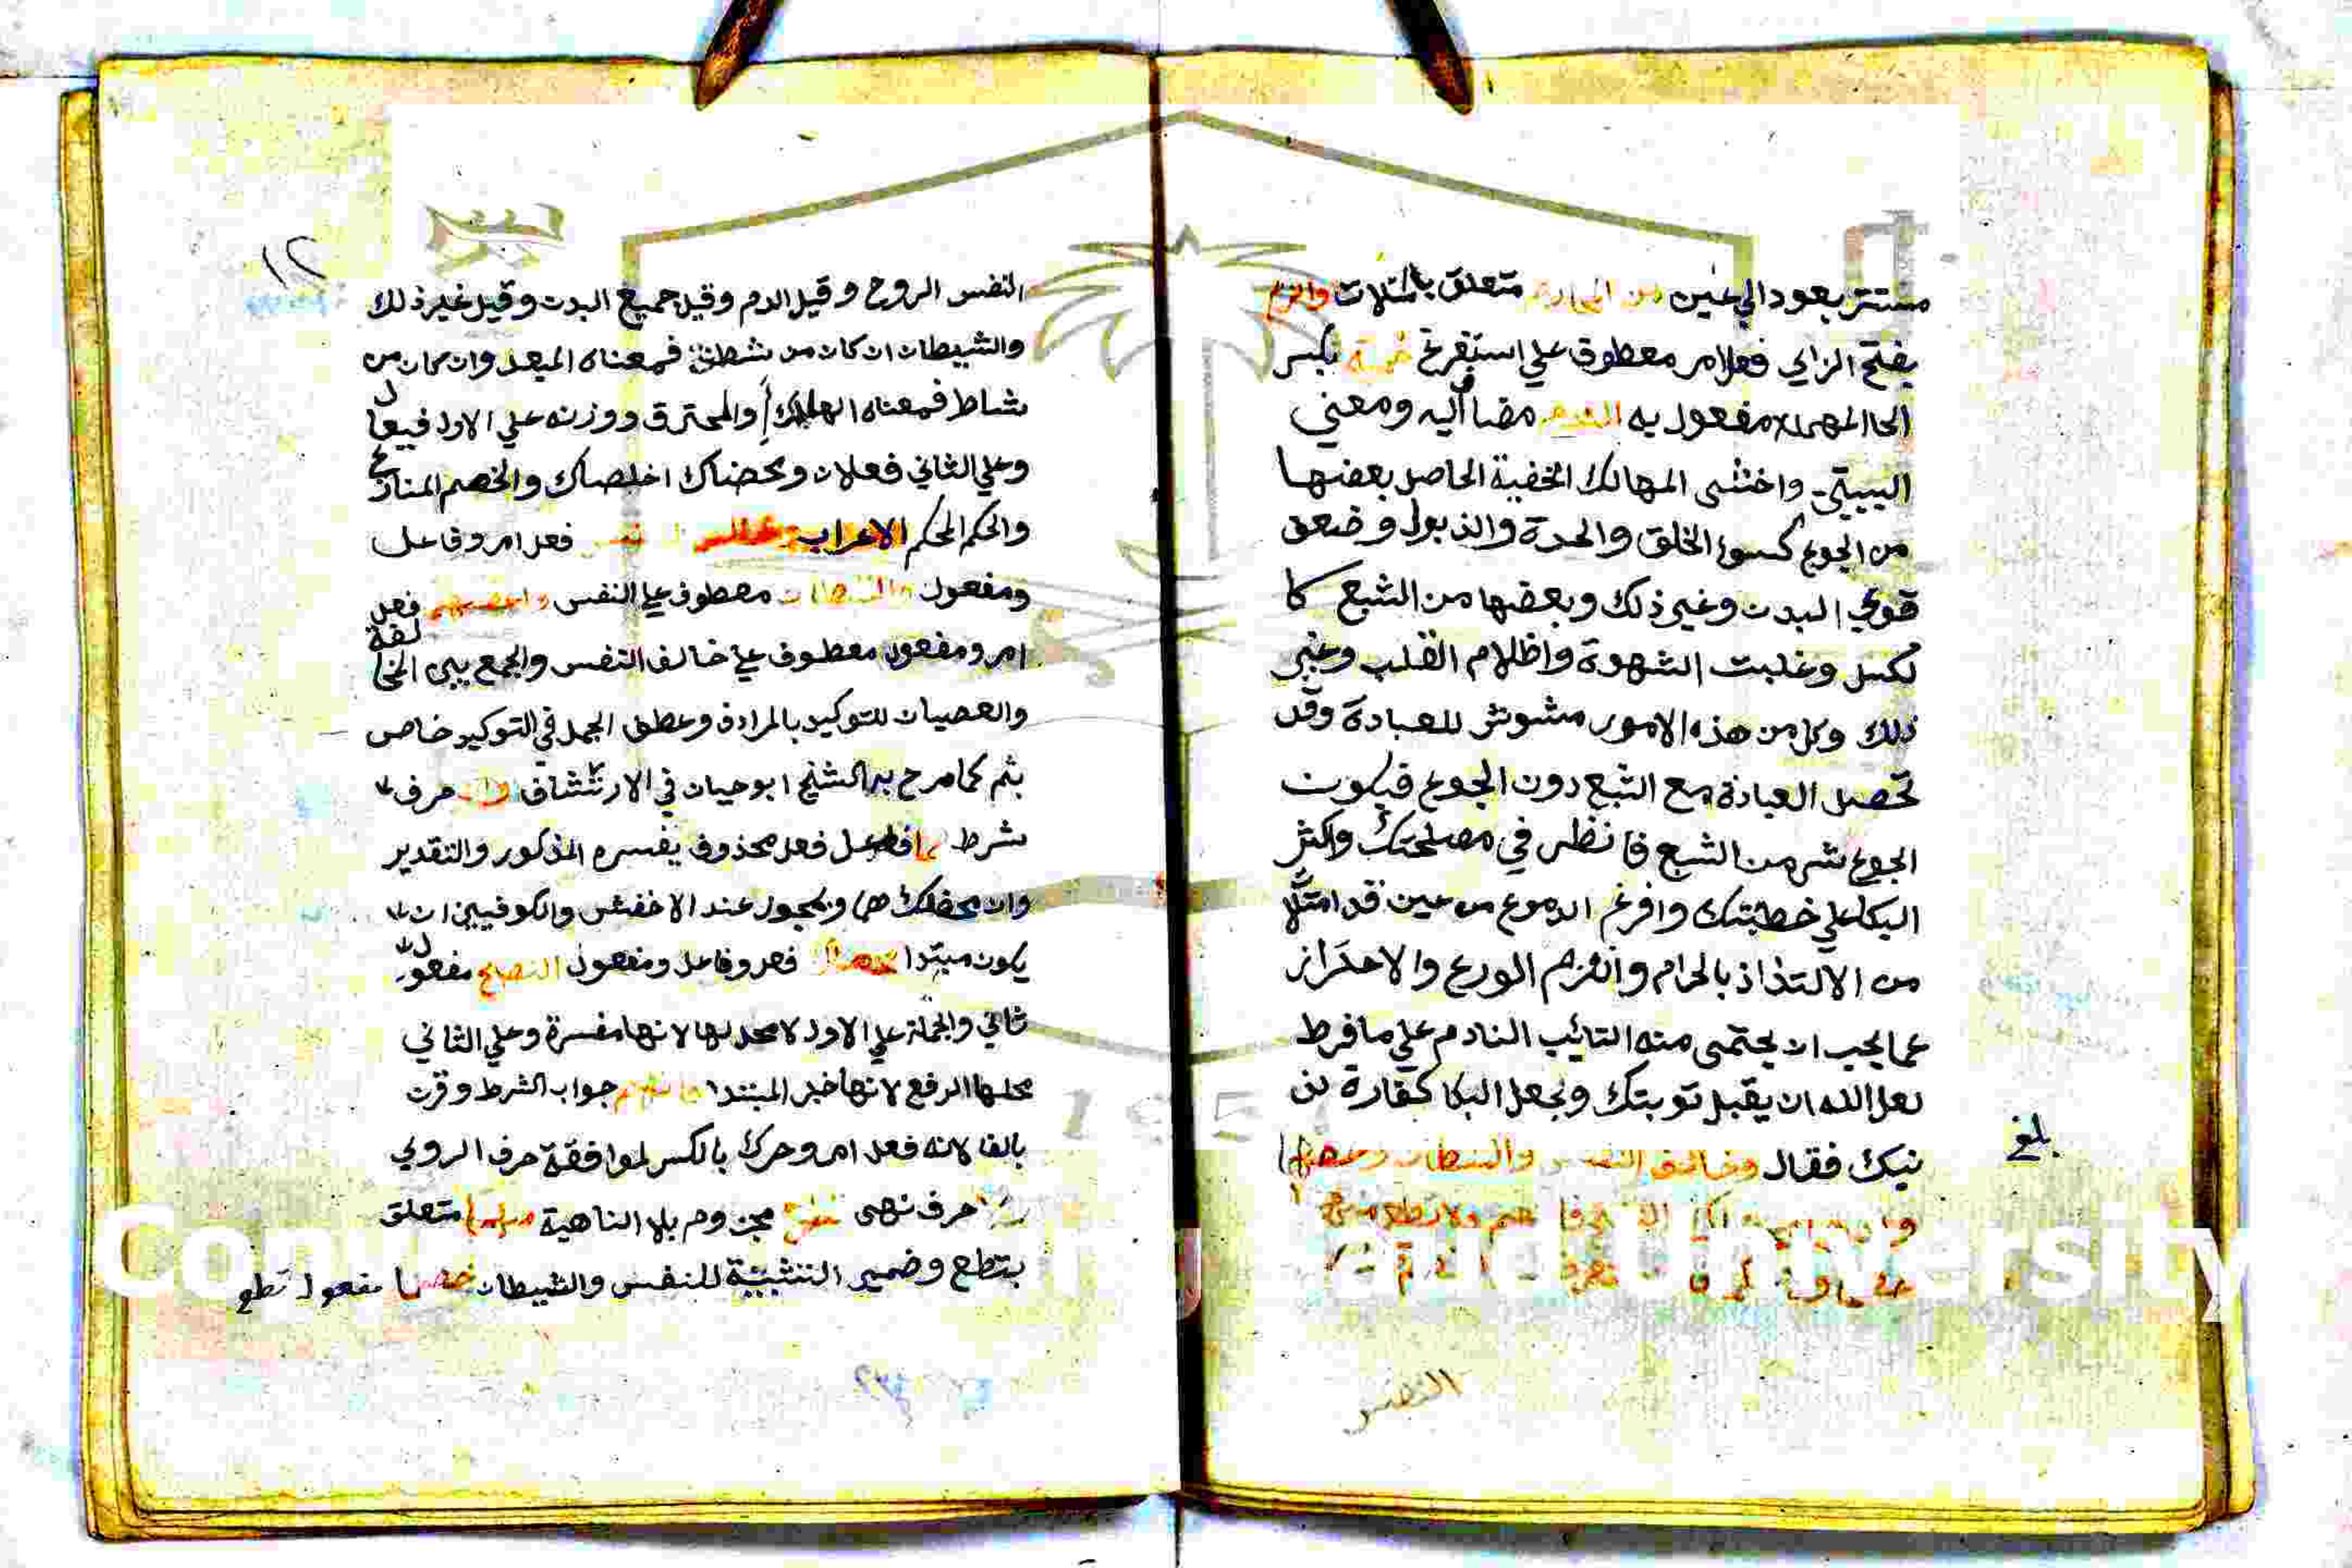 مستتر يعود الي عين من المحارم متعلق بامتلات والزم
بفتح الزاي فعل امر معطوف علي استفرغ حمية بكسر
الحا المهملة مفعول به الندم مضاف اليه ومعني
البيتين واخشى المهالك الخفية الحاصل بعضها
من الجوع كسوء الخلق والحدة والذبول وضعف
قوي البدن وغير ذلك وبعضها من الشبع كا
لكسل وغلبت الشهوة واظلام القلب وغير
ذلك وكل من هذه الامور مشوش للعبادة وقد
تحصل العبادة مع الشبع دون الجوع فيكون
الجوع شر من الشبع فانظر في مصلحتك واكثر
البكا علي خطيئتك وافرغ الدموع من عين قد امتلأ
من الالتذاذ بالحرام والزم الورع والاحتراز
عما يجب ان يحتمى منه التائب النادم علي ما فرط
لعل الله ان يقبل توبتك ويجعل البكا كفارة لذ
نبك فقال وخالف النفس والشيطان واعصهما
بلغ
النفس
١٢
النفس الروح وقيل الدم وقيل جميع البدن وقيل غير ذلك
والشيطان ان كان من شطن فمعناه المبعد وان كان من
شاط فمعناه الهالك أو المحترق ووزنه علي الاول فيعال
وعلي الثاني فعلان ومحضاك اخلصاك والخصم المنازع
والحكم المحكم الاعراب خالف فعل امر وفاعل
ومفعول والشيطان معطوف علي النفس واعصهما فعل
امر ومفعول معطوف علي خالف النفس والجمع بين المخالفة
والعصيان للتوكيد بالمرادف وعطف الجمل في التوكيد خاص
بثم كما صرح به الشيخ ابو حيان في الارتشاف وان حرف
شرط هما فاعل فعل محذوف يفسره المذكور والتقدير
وان محضاك هما ويجوز عند الاخفش والكوفيين ان
يكون مبتدا محضاك فعل وفاعل ومفعول النصح مفعول
ثاني والجملة علي الاول لا محل لها لانها مفسرة وعلي الثاني
محلها الرفع لانها خبر المبتدا فاتهم جواب الشرط وقرن
بالفا لانه فعل امر وحرك بالكسر لموافقة حرف الروي
ولا حرف نهى تطع مجزوم بلا الناهية منهما متعلق
بتطع وضمير التثنية للنفس والشيطان خصما مفعول تطع